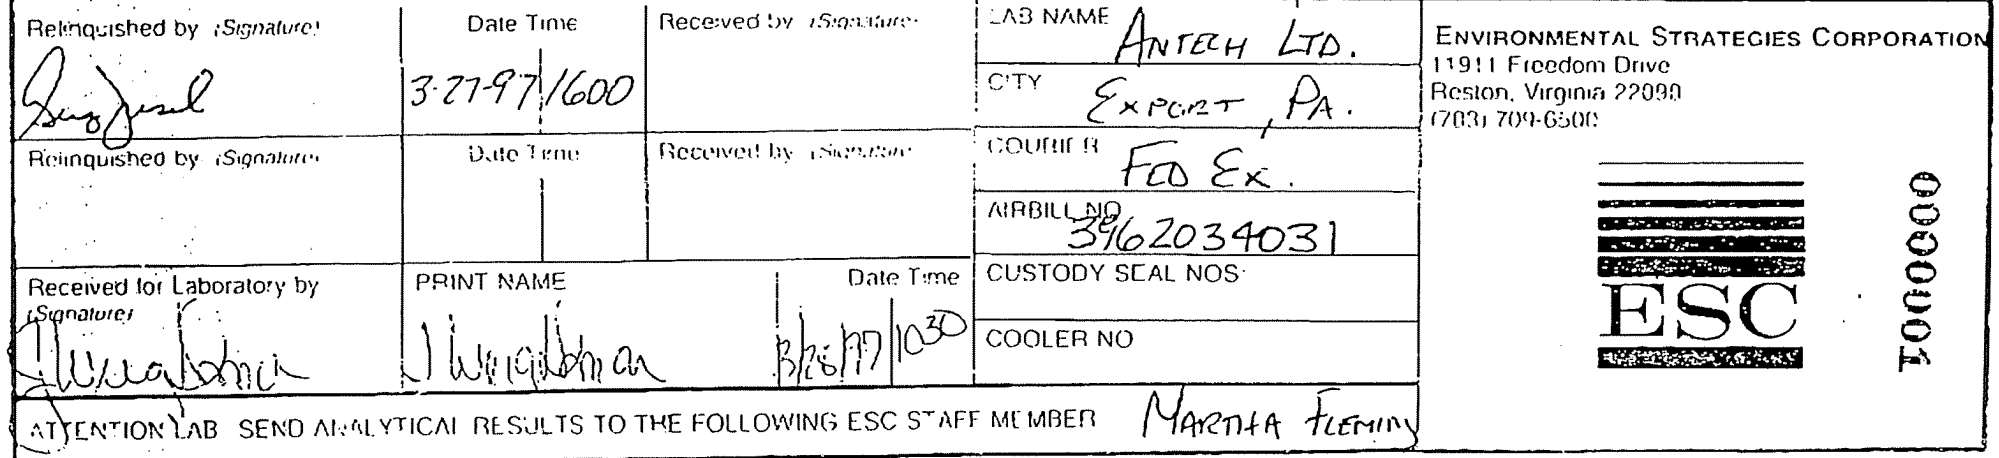 Relinquished by (Signature) Date Time Received by (Signature)
3-27-97 1600
Relinquished by (Signature) Date Time Received by (Signature)
Received for Laboratory by (Signature) PRINT NAME Date Time
1030
LAB NAME ANTECH LTD.
CITY EXPORT, PA.
COURIER FED EX.
AIRBILL NO 3962034031
CUSTODY SEAL NOS
COOLER NO
ATTENTION LAB SEND ANALYTICAL RESULTS TO THE FOLLOWING ESC STAFF MEMBER MARTHA FLEMING
ENVIRONMENTAL STRATEGIES CORPORATION
11911 Freedom Drive
Reston, Virginia 22090
(703) 709-6500
ESC
1000000